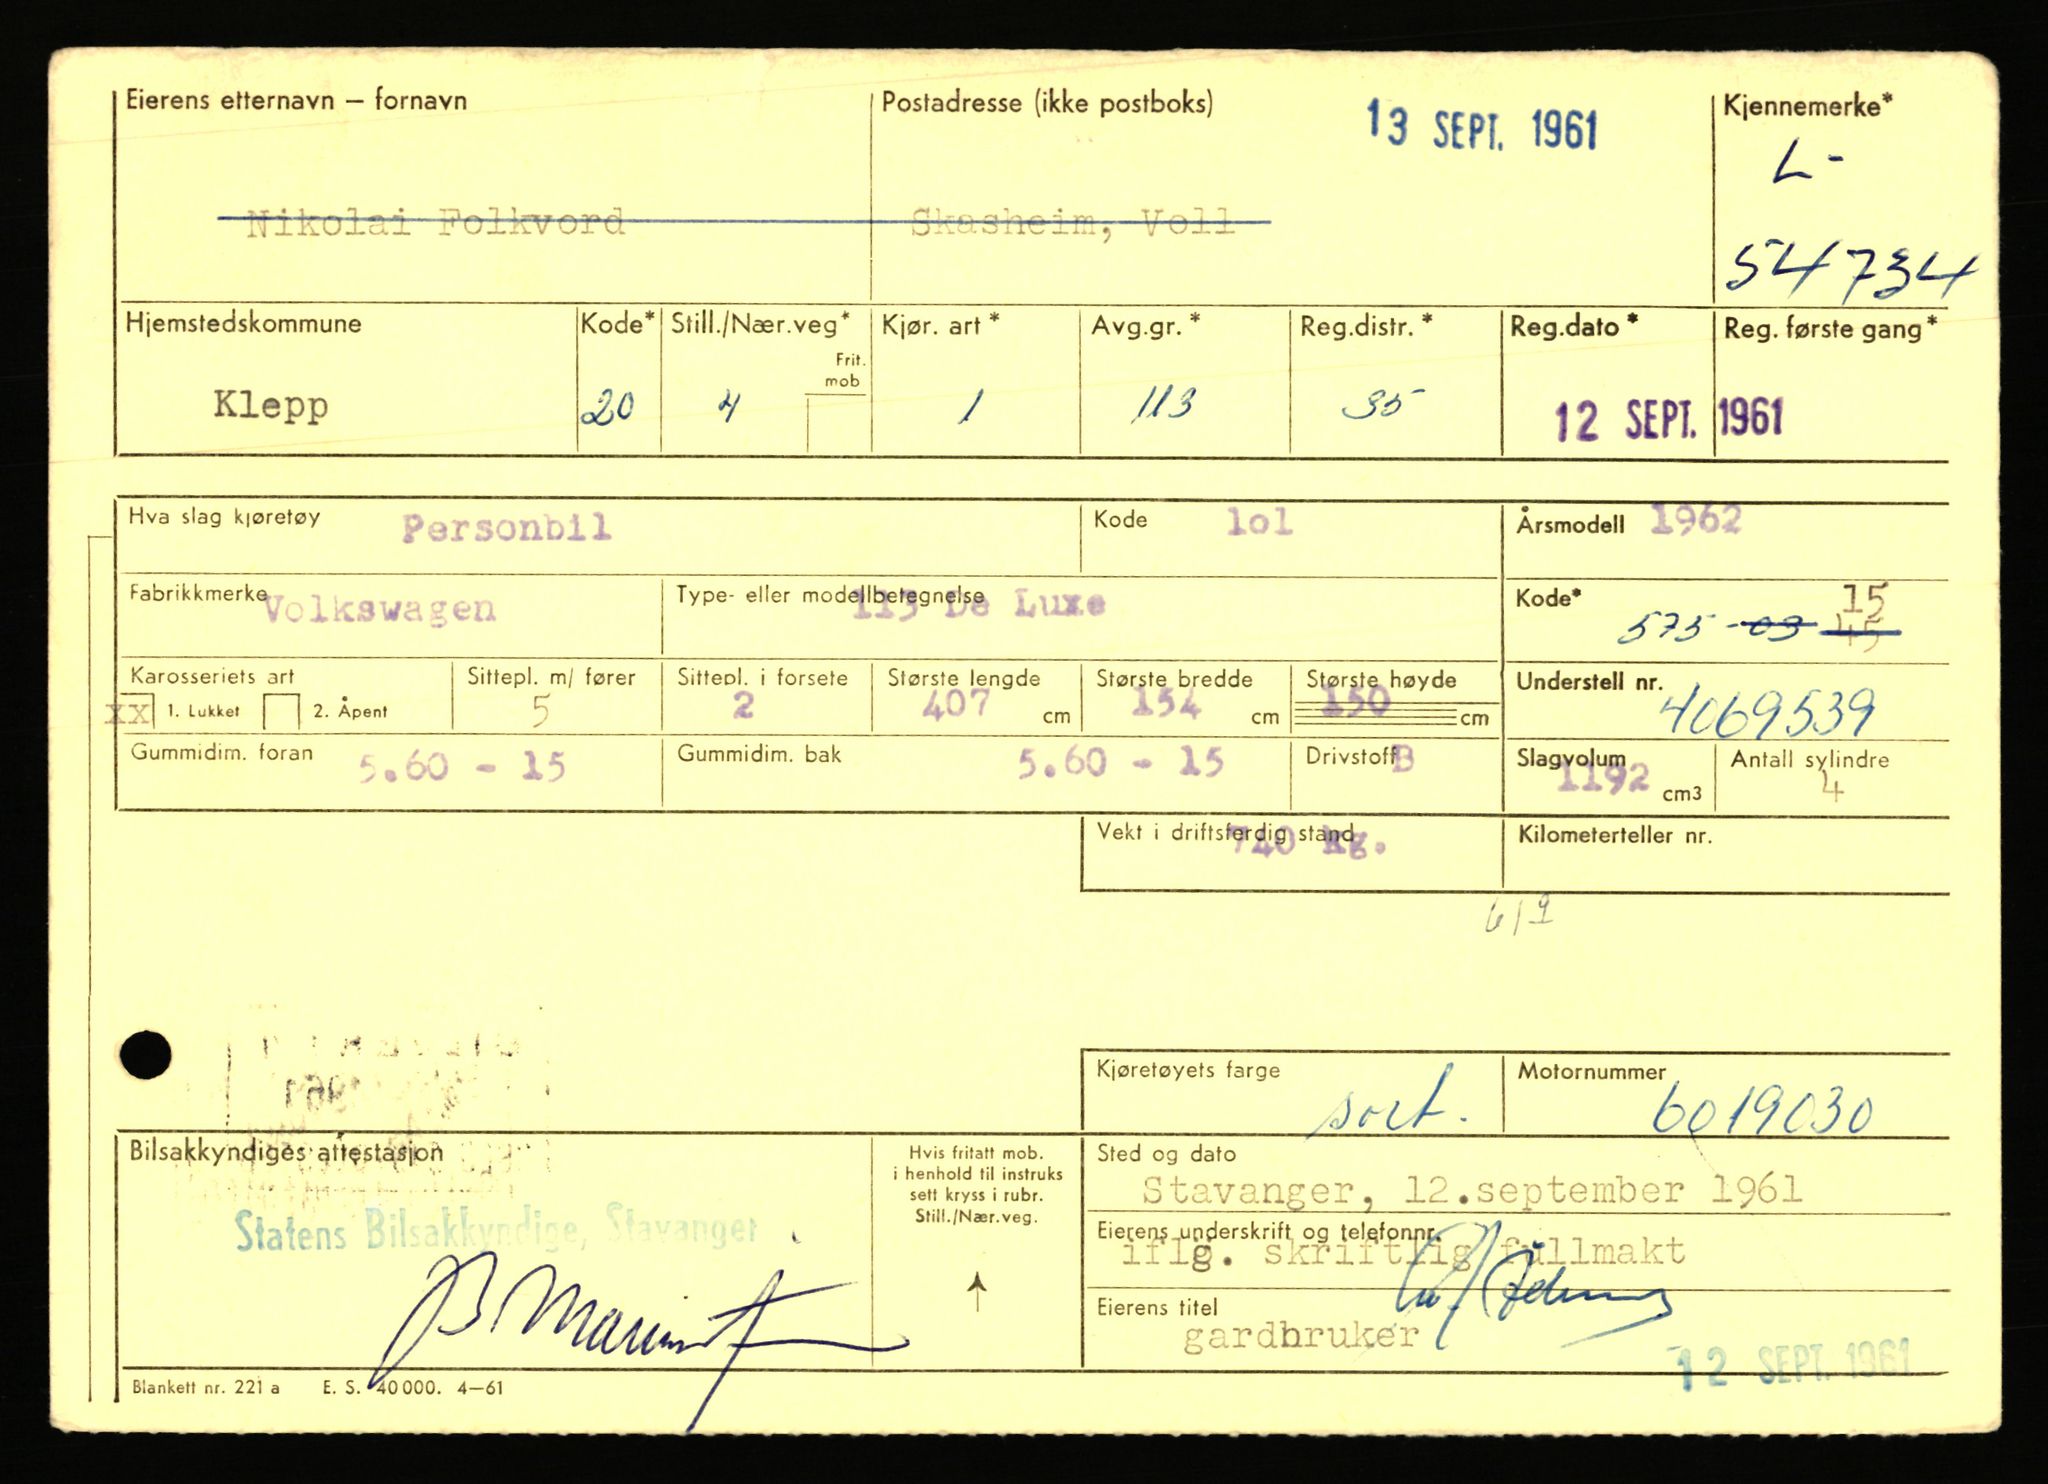 Eierens etternavn — fornavn
Postadresse (ikke postboks)
13 SEPT. 1961
Kjennemerke*
L-
54734
Nikolai Folkvord
Skasheim, Voll
Hjemstedskommune
Kode*
Still./Nær.veg*
Frit. mob
Kjør. art *
Avg.gr. *
Reg.distr. *
Reg.dato *
Reg. første gang*
Klepp
20
4
1
113
35
12 SEPT. 1961
Hva slag kjøretøy Personbil
Kode lol
Årsmodell 1962
Fabrikkmerke Volkswagen
Type- eller modellbetegnelse 113 De Luxe
Kode* 15
575 -03 45
Karosseriets art
xx 1. Lukket 2. Åpent
Sittepl. m/ fører
5
Sittepl. i forsete
2
Største lengde
407 cm
Største bredde
154 cm
Største høyde
150 cm
Understell nr.
4069539
Gummidim. foran 5.60 - 15
Gummidim. bak 5.60 - 15
Drivstoff B
Slagvolum
1192 cm3
Antall sylindre
4
Vekt i driftsferdig stand
740 kg.
Kilometerteller nr.
6/9
Kjøretøyets farge
sort.
Motornummer
6019030
Bilsakkyndiges attestasjon
Statens Bilsakkyndige, Stavanger
Hvis fritatt mob.
i henhold til instruks
sett kryss i rubr.
Still./Nær.veg.
Sted og dato
Stavanger, 12.september 1961
Eierens underskrift og telefonnr.
iflg. skriftlig fullmakt
Eierens titel
gardbruker
12 SEPT. 1961
Blankett nr. 221 a E. S. 40 000. 4—61